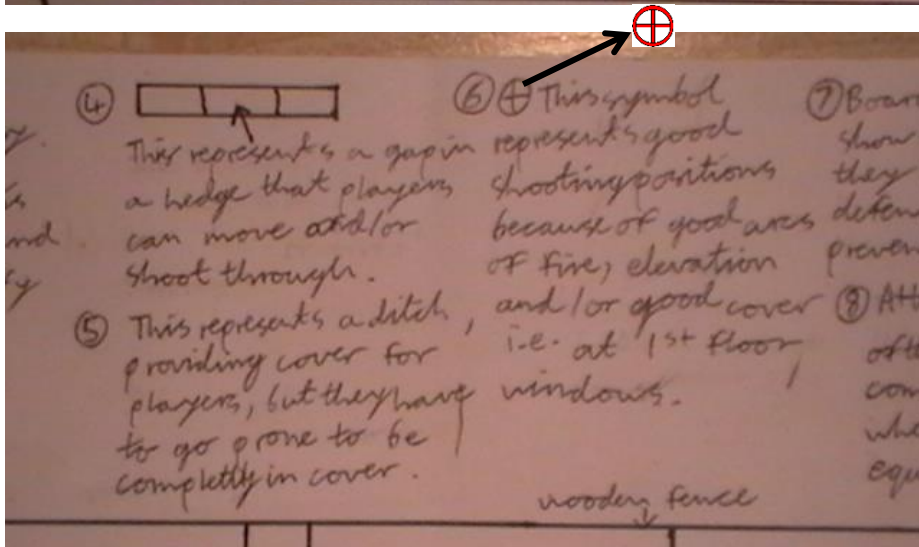 ④
This represents a gap in
a hedge that players
can move and/or
shoot through.
⑤ This represents a ditch,
providing cover for
players, but they have
to go prone to be
completly in cover.
⑥ This symbol
represents good
shooting positions
because of good arcs
of fire, elevation
and/or good cover
i.e. at 1st floor
windows.
⑦ Boar
show
they
defen
preven
⑧ Att
of th
com
whe
equ
nd
y
wooden fence